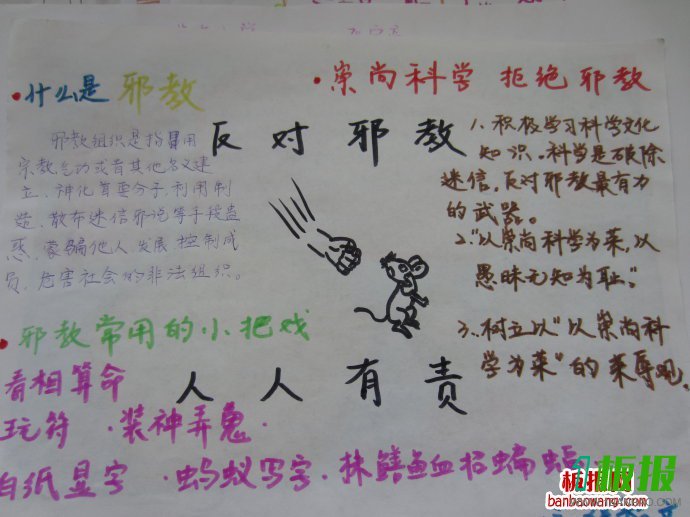 ·什么是 邪教
邪教组织是指冒用
宗教气功或者其他名义建
立、神化首要分子,利用制
造、散布迷信邪说等手段蛊
惑、蒙骗他人,发展、控制成
员、危害社会的非法组织。
反对邪教
·崇尚科学 拒绝邪教
1、积极学习科学文化
知识。科学是破除
迷信,反对邪教最有力
的武器。
2."以崇尚科学为荣,以
愚昧无知为耻"。
3、树立以"以崇尚科
学为荣"的荣辱观。
·邪教常用的小把戏
看相算命
玩符 ·装神弄鬼·
白纸显字 ·蚂蚁写字·抹鳝鱼血招蝙蝠
人人有责
板报网
banbaowang.com
板报